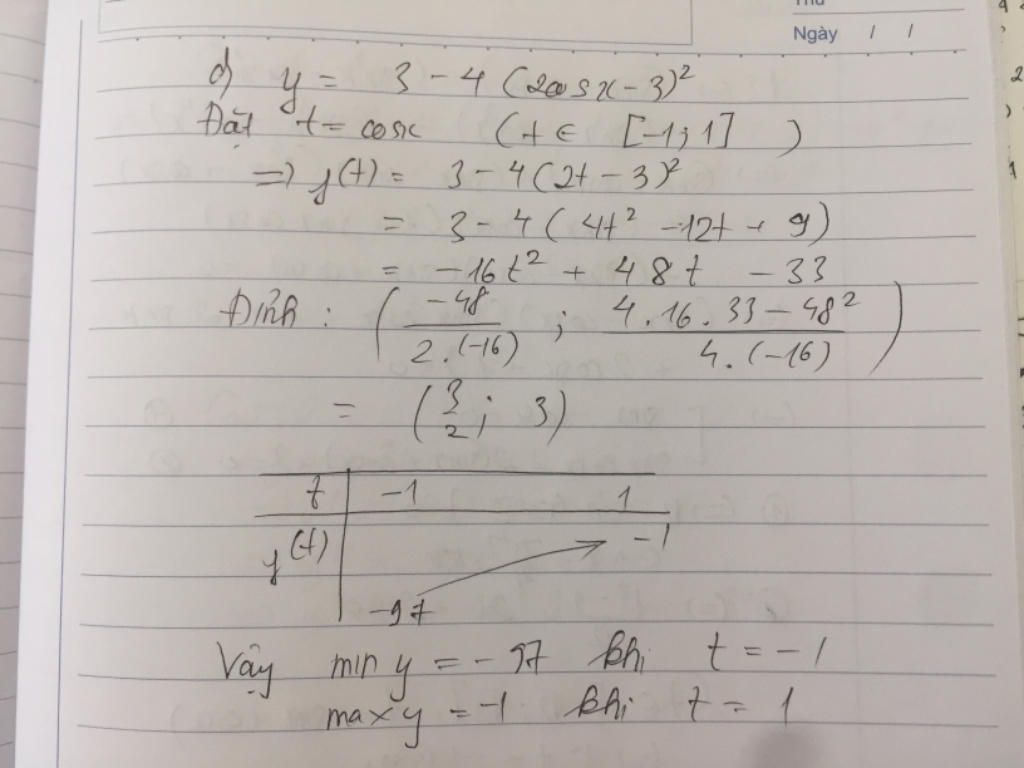 Ngày / /
d) y = 3 - 4 (2cosx - 3)²
Đặt t = cosx (t ∈ [-1; 1] )
=> y(t) = 3 - 4(2t - 3)²
= 3 - 4 ( 4t² - 12t + 9)
= -16t² + 48t - 33
Đỉnh : ( -48 / 2.(-16) ; 4.16.33 - 48² / 4.(-16) )
= ( 3/2 ; 3)
t -1 1
y(t) -97 -1
Vậy min y = -97 khi t = -1
max y = -1 khi t = 1